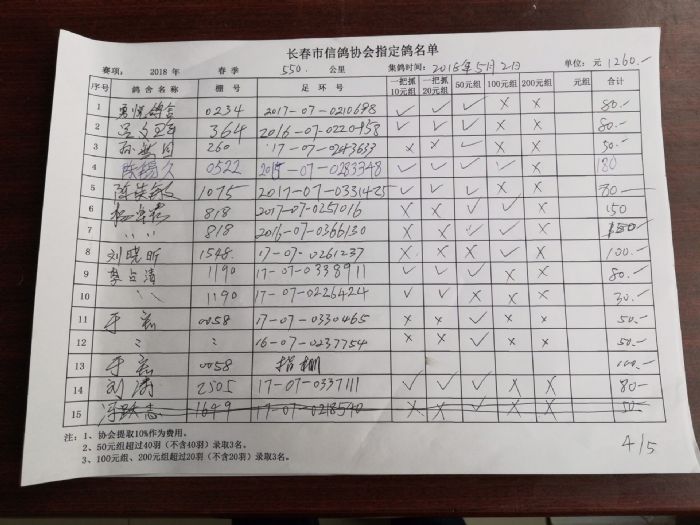 长春市信鸽协会指定鸽名单
赛项： 2018 年 春 季 550. 公里 集鸽时间：2018年5月2日 单位：元 1260.-
序号 鸽 舍 名 称 棚 号 足 环 号 一把抓10元组 一把抓20元组 50元组 100元组 200元组 元组 合计
1 0234 2017-07-0210698 ✓ ✓ ✓ × × 80.-
2 364 2016-07-0220458 ✓ ✓ ✓ × × 80.-
3 260 17-07-0243633 × × ✓ × × 50.-
4 0522 2015-07-0283348 ✓ ✓ ✓ ✓ × 180
5 1075 2017-07-0331425 ✓ ✓ ✓ × × 80.-
6 818 2017-07-0257016 × × ✓ ✓ × 150
7 〃 〃 818 2016-07-0366130 × × ✓ ✓ × 150.-
8 刘晓昕 1548. 17-07-0261237 × × × ✓ × 100.-
9 李占清 1190 17-07-0338911 ✓ ✓ ✓ × × 80.-
10 〃 1190 17-07-0226424 ✓ ✓ × × × 30.-
11 0058 17-07-0330465 × × ✓ × × 50.-
12 〃 〃 16-07-0237754 × × ✓ × × 50.-
13 0058 指棚 100.-
14 刘涛 2505 17-07-0337111 ✓ ✓ ✓ × × 80-
15 1649 17-07-0218540 × × ✓ × × 50-
注：1、协会提取10%作为费用。
2、50元组超过40羽（不含40羽）录取3名。
3、100元组、200元组超过20羽（不含20羽）录取3名。
4/5